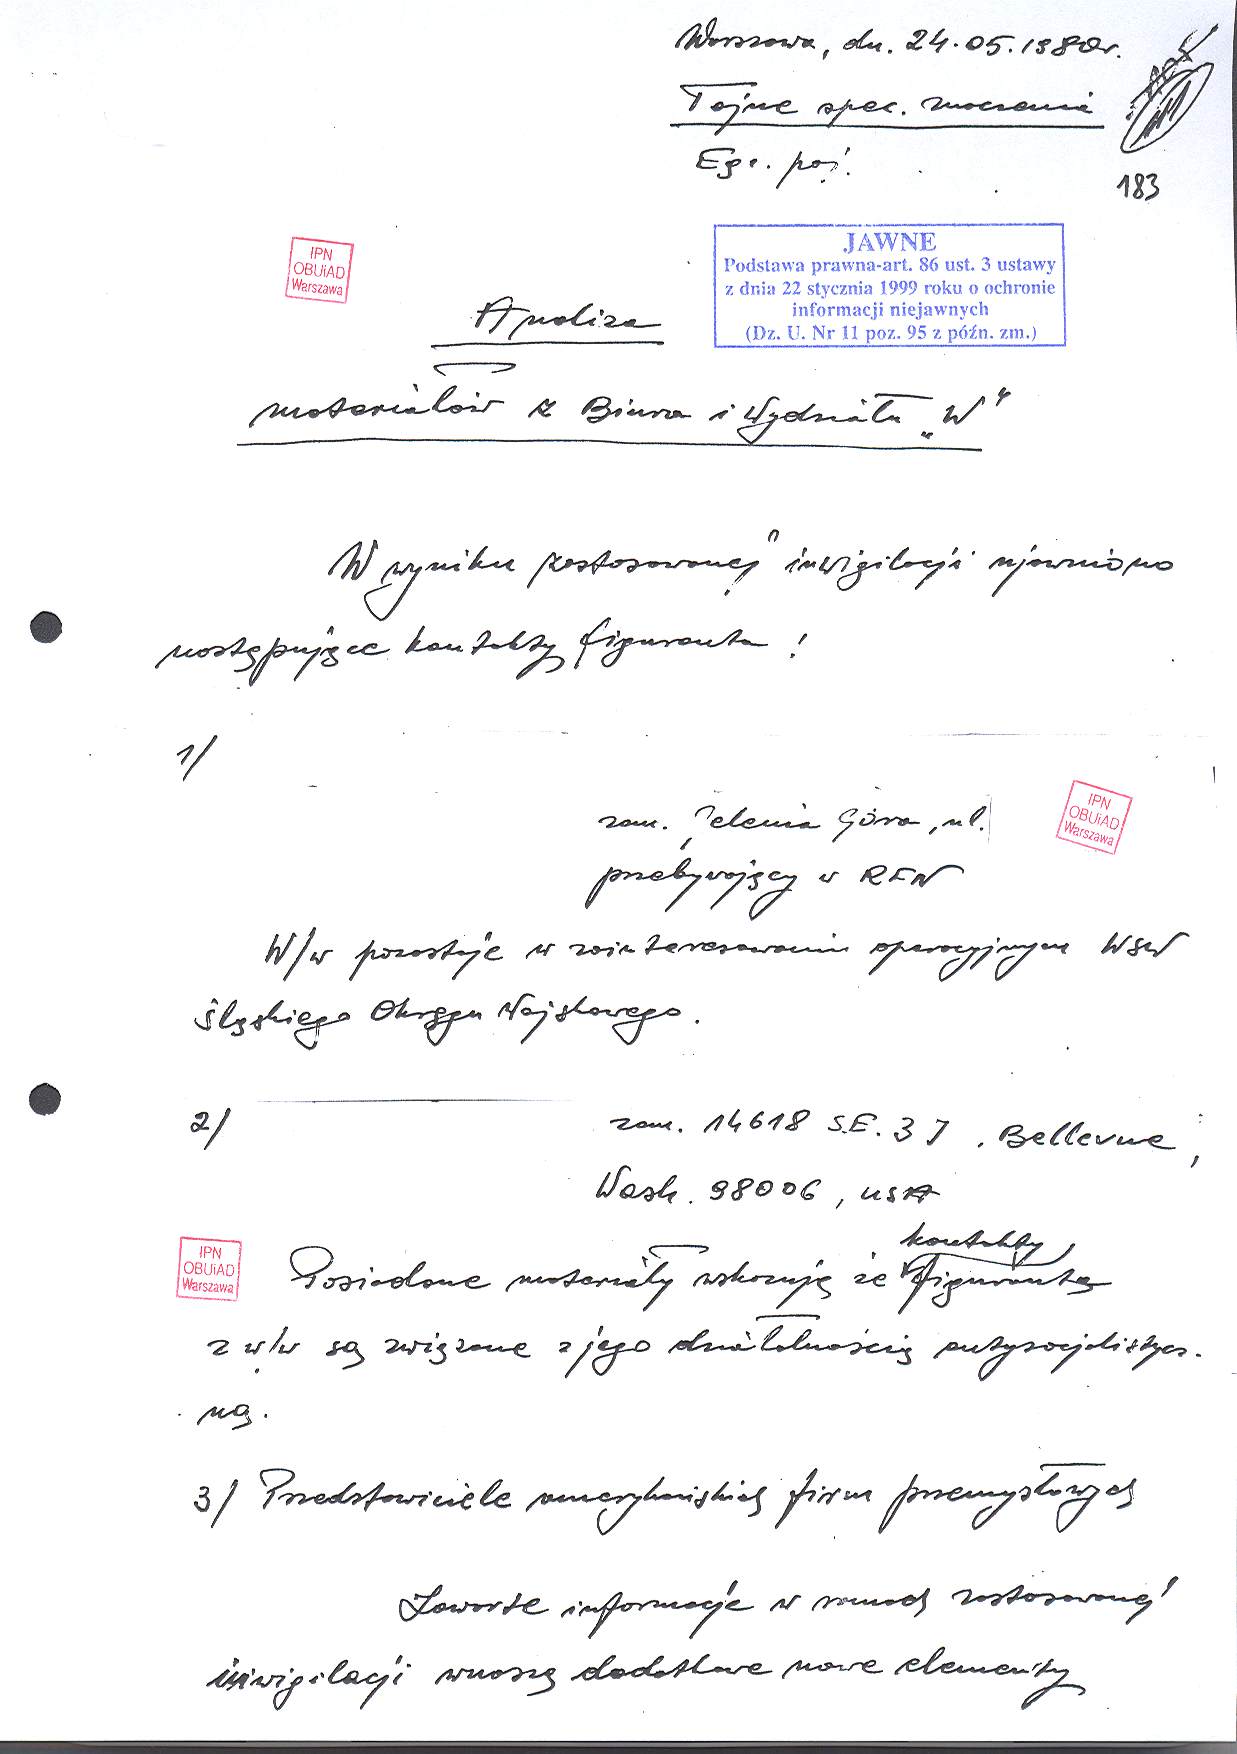 Warszawa, dn. 24.05.1980r.
Tajne spec. znaczenia
Egz. poj.
183
IPN
OBUiAD
Warszawa
JAWNE
Podstawa prawna-art. 86 ust. 3 ustawy
z dnia 22 stycznia 1999 roku o ochronie
informacji niejawnych
(Dz. U. Nr 11 poz. 95 z późn. zm.)
Analiza
materiałów z Biura i Wydziału „W"
W wyniku zastosowanej inwigilacji ujawniono
następujące kontakty figuranta:
1/
zam. Jelenia Góra, ul.
IPN
OBUiAD
Warszawa
przebywający w RFN
W/w pozostaje w zainteresowaniu operacyjnym WSW
Śląskiego Okręgu Wojskowego.
2/ zam. 14618 S.E. 3 , Bellevue,
Wash. 98006, USA
IPN
OBUiAD
Warszawa
kontakty
Posiadane materiały wskazują że figuranta
z w/w są związane z jego działalnością antysocjalistycz-
ną.
3/ Przedstawiciele amerykańskich firm przemysłowych
Zawarte informacje w ramach zastosowanej
inwigilacji wnoszą dodatkowe nowe elementy